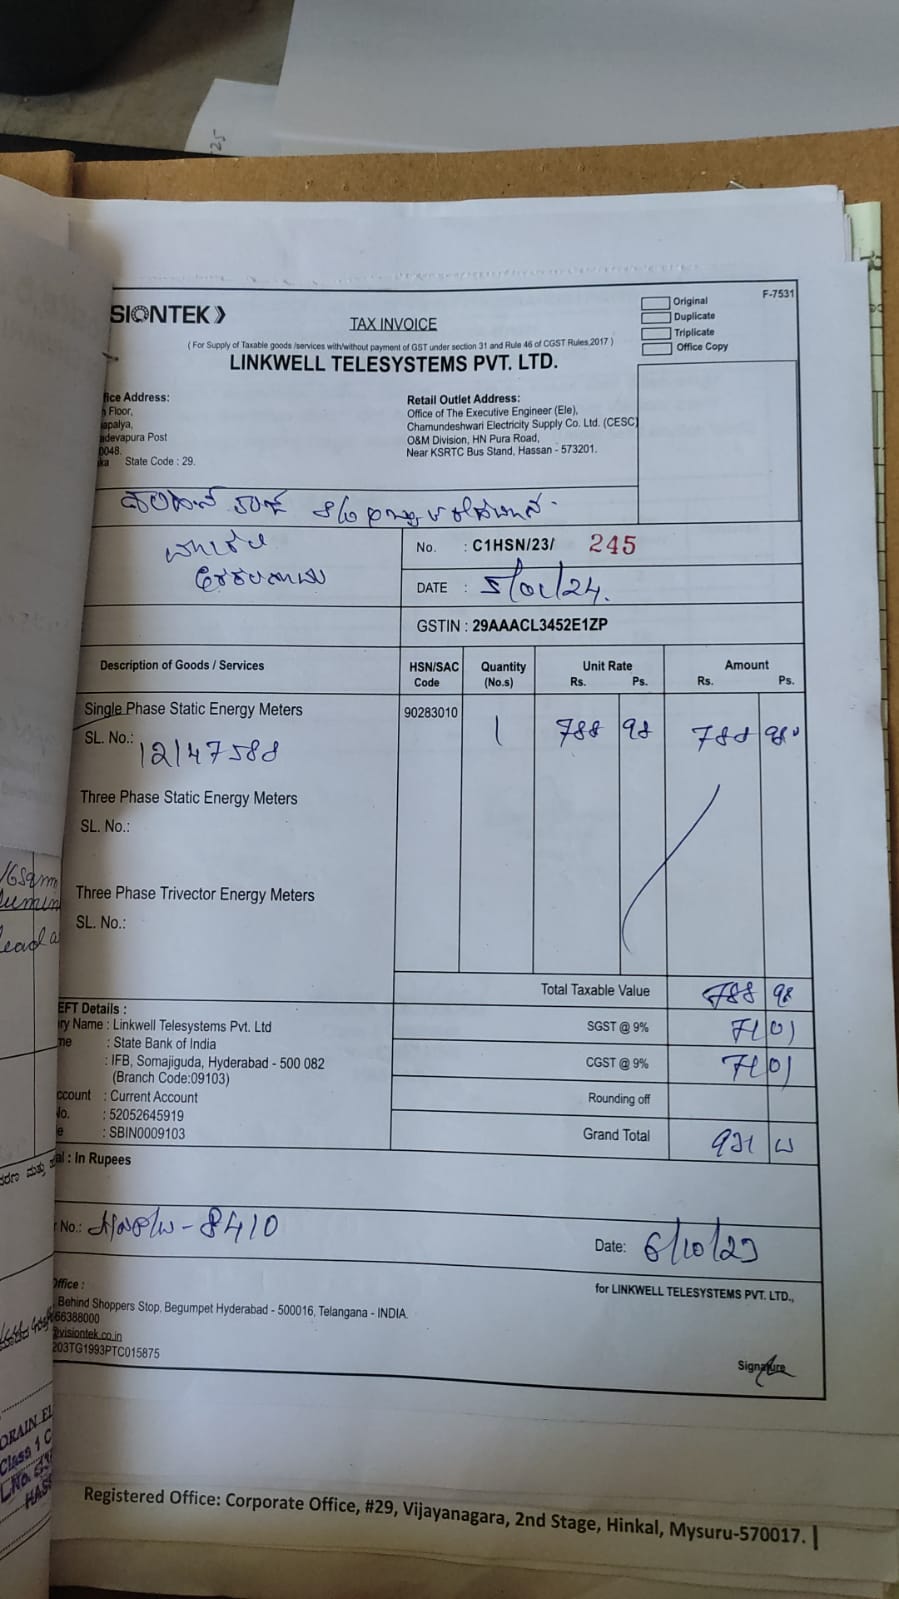 SIONTEK
TAX INVOICE
Original
Duplicate
Triplicate
Office Copy
F-7531
( For Supply of Taxable goods /services with/without payment of GST under section 31 and Rule 46 of CGST Rules,2017 )
LINKWELL TELESYSTEMS PVT. LTD.
ice Address:
Floor,
apalya,
adevapura Post
0048.
ka State Code : 29.
Retail Outlet Address:
Office of The Executive Engineer (Ele),
Chamundeshwari Electricity Supply Co. Ltd. (CESC)
O&M Division, HN Pura Road,
Near KSRTC Bus Stand, Hassan - 573201.
No. : C1HSN/23/ 245
DATE : 5/01/24.
GSTIN : 29AAACL3452E1ZP
Description of Goods / Services HSN/SAC Code Quantity (No.s) Unit Rate Rs. Ps. Amount Rs. Ps.
Single Phase Static Energy Meters 90283010 1 788 98 788 98
SL. No.: 12147588
Three Phase Static Energy Meters
SL. No.:
Three Phase Trivector Energy Meters
SL. No.:
Total Taxable Value 788 98
SGST @ 9% 71 01
CGST @ 9% 71 01
Rounding off
Grand Total 931
EFT Details :
ry Name : Linkwell Telesystems Pvt. Ltd
me : State Bank of India
: IFB, Somajiguda, Hyderabad - 500 082
(Branch Code:09103)
ccount : Current Account
No. : 52052645919
e : SBIN0009103
al : In Rupees
No.: 8410
Date: 6/10/23
for LINKWELL TELESYSTEMS PVT. LTD.,
Office :
Behind Shoppers Stop, Begumpet Hyderabad - 500016, Telangana - INDIA.
66388000
@visiontek.co.in
203TG1993PTC015875
Signature
Registered Office: Corporate Office, #29, Vijayanagara, 2nd Stage, Hinkal, Mysuru-570017.